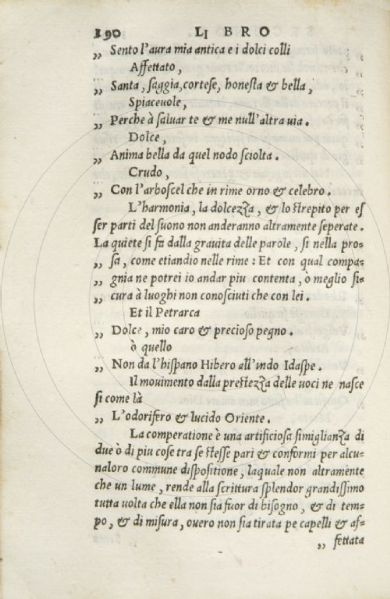 190 LI BRO
„ Sento l'aura mia antica e i dolci colli
Affettato,
„ Santa, ſaggia, corteſe, honeſta & bella,
Spiaceuole,
„ Perche à ſaluar te & me null'altra uia.
Dolce,
„ Anima bella da quel nodo ſciolta.
Crudo,
„ Con l'arboſcel che in rime orno & celebro.
L'harmonia, la dolcezza, & lo ſtrepito per eſ
ſer parti del ſuono non anderanno altramente ſeperate.
La quiete ſi fa dalla grauita delle parole, ſi nella pro-
„ ſa, come etiandio nelle rime: Et con qual compa-
„ gnia ne potrei io andar piu contenta, o meglio ſi-
„ cura à luoghi non conoſciuti che con lei.
Et il Petrarca
„ Dolce, mio caro & precioſo pegno.
ò quello
„ Non da l'hiſpano Hibero all'indo Idaſpe.
Il mouimento dalla preſtezza delle uoci ne naſce
ſi come là
„ L'odorifero & lucido Oriente.
La comperatione è una artificioſa ſimiglianza di
due ò di piu coſe tra ſe ſteſſe pari & conformi per alcu-
naloro commune diſpoſitione, laquale non altramente
che un lume, rende alla ſcrittura ſplendor grandiſſimo
tutta uolta che ella non ſia fuor di biſogno, & di tem-
po, & di miſura, ouero non ſia tirata pe capelli & aſ-
„ fettata